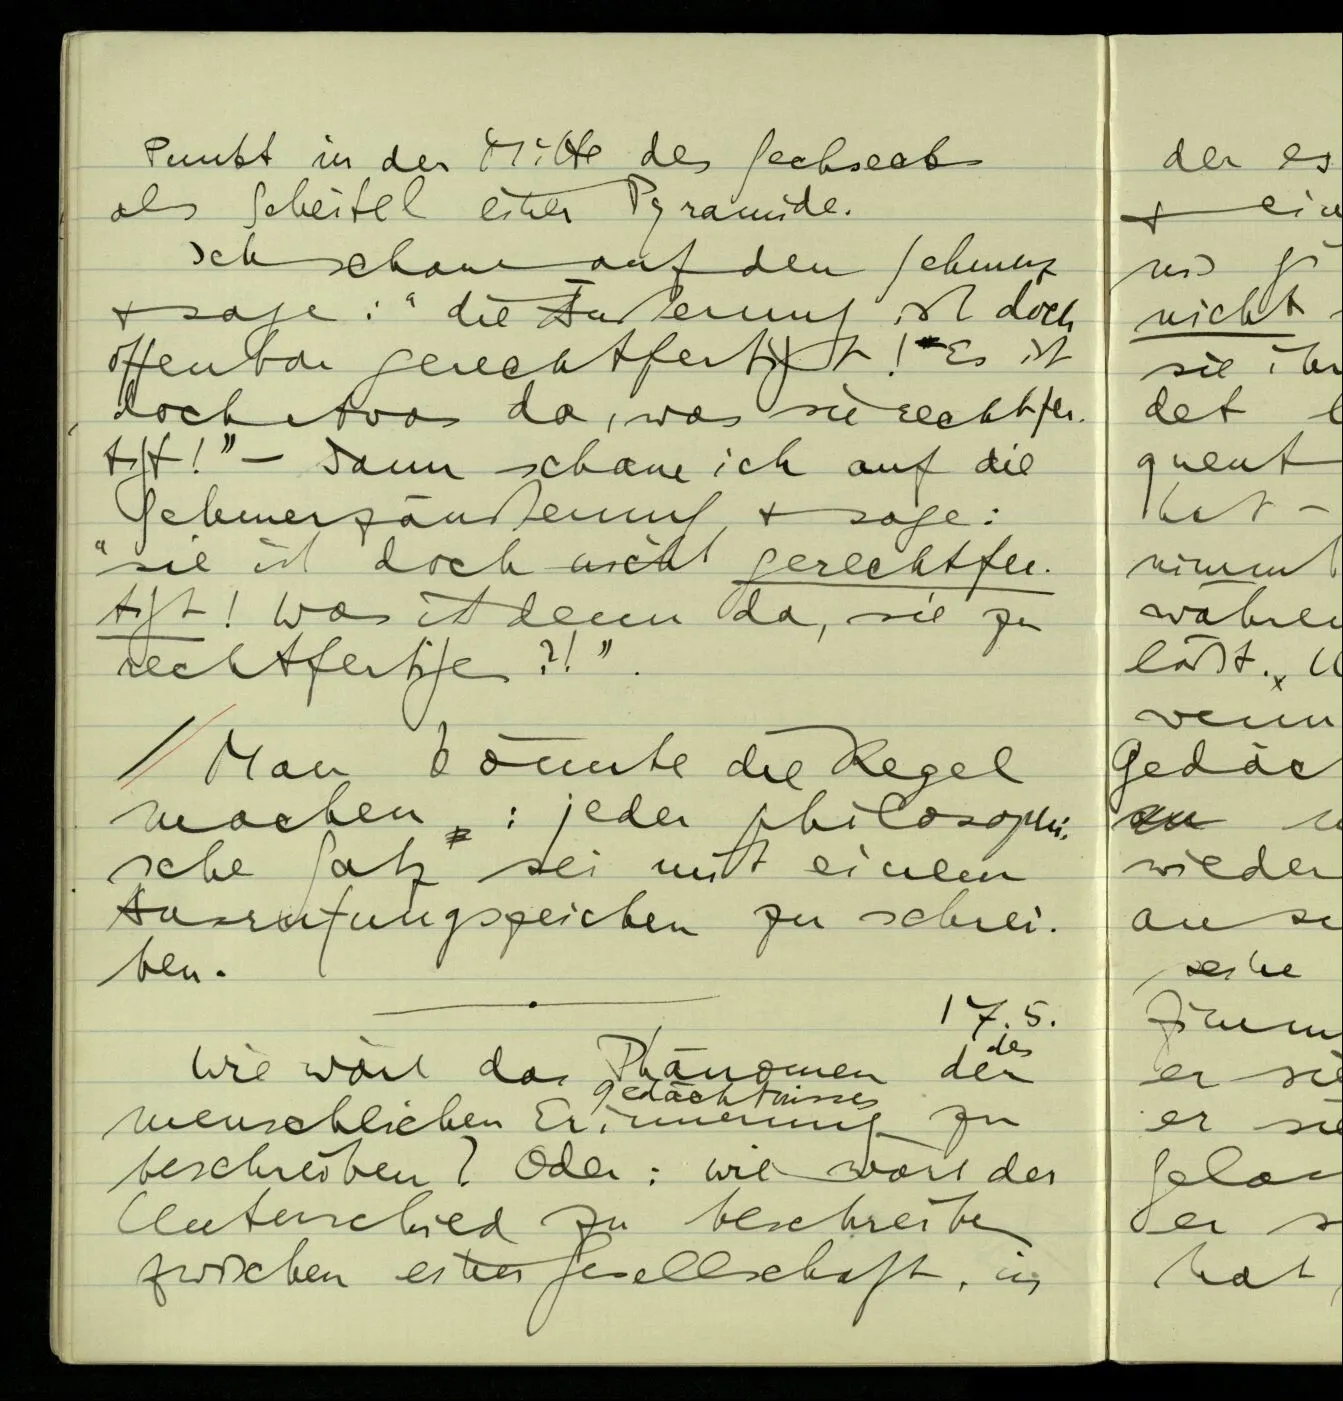 Punkt in der Mitte des Sechsecks
als Scheitel einer Pyramide.
Ich schaue auf den Schmerz
+ sage: “die Äußerung ist doch
offenbar gerechtfertigt! Es ist
doch etwas da, was sie rechtfer-
tigt!” – Dann schaue ich auf die
Schmerzäußerung + sage:
“sie ist doch nicht gerechtfer-
tigt! Was ist denn da, sie zu
rechtfertigen?!”.
Man könnte die Regel
machen: jeder philosophi-
sche Satz sei mit einem
Ausrufungszeichen zu schrei-
ben.
17.5.
des
Wie wäre das Phänomen der
Gedächtnisses
menschlichen Erinnerung zu
beschreiben? Oder: wie wäre der
Unterschied zu beschreiben
zwischen einer Gesellschaft, in
der es
+ ein
nicht
sie ihr
det
quent
hat –
nimmt
währen
läßt.
wenn
Gedäc
wieder
an
seine
er sie
er sie
er s
hat,